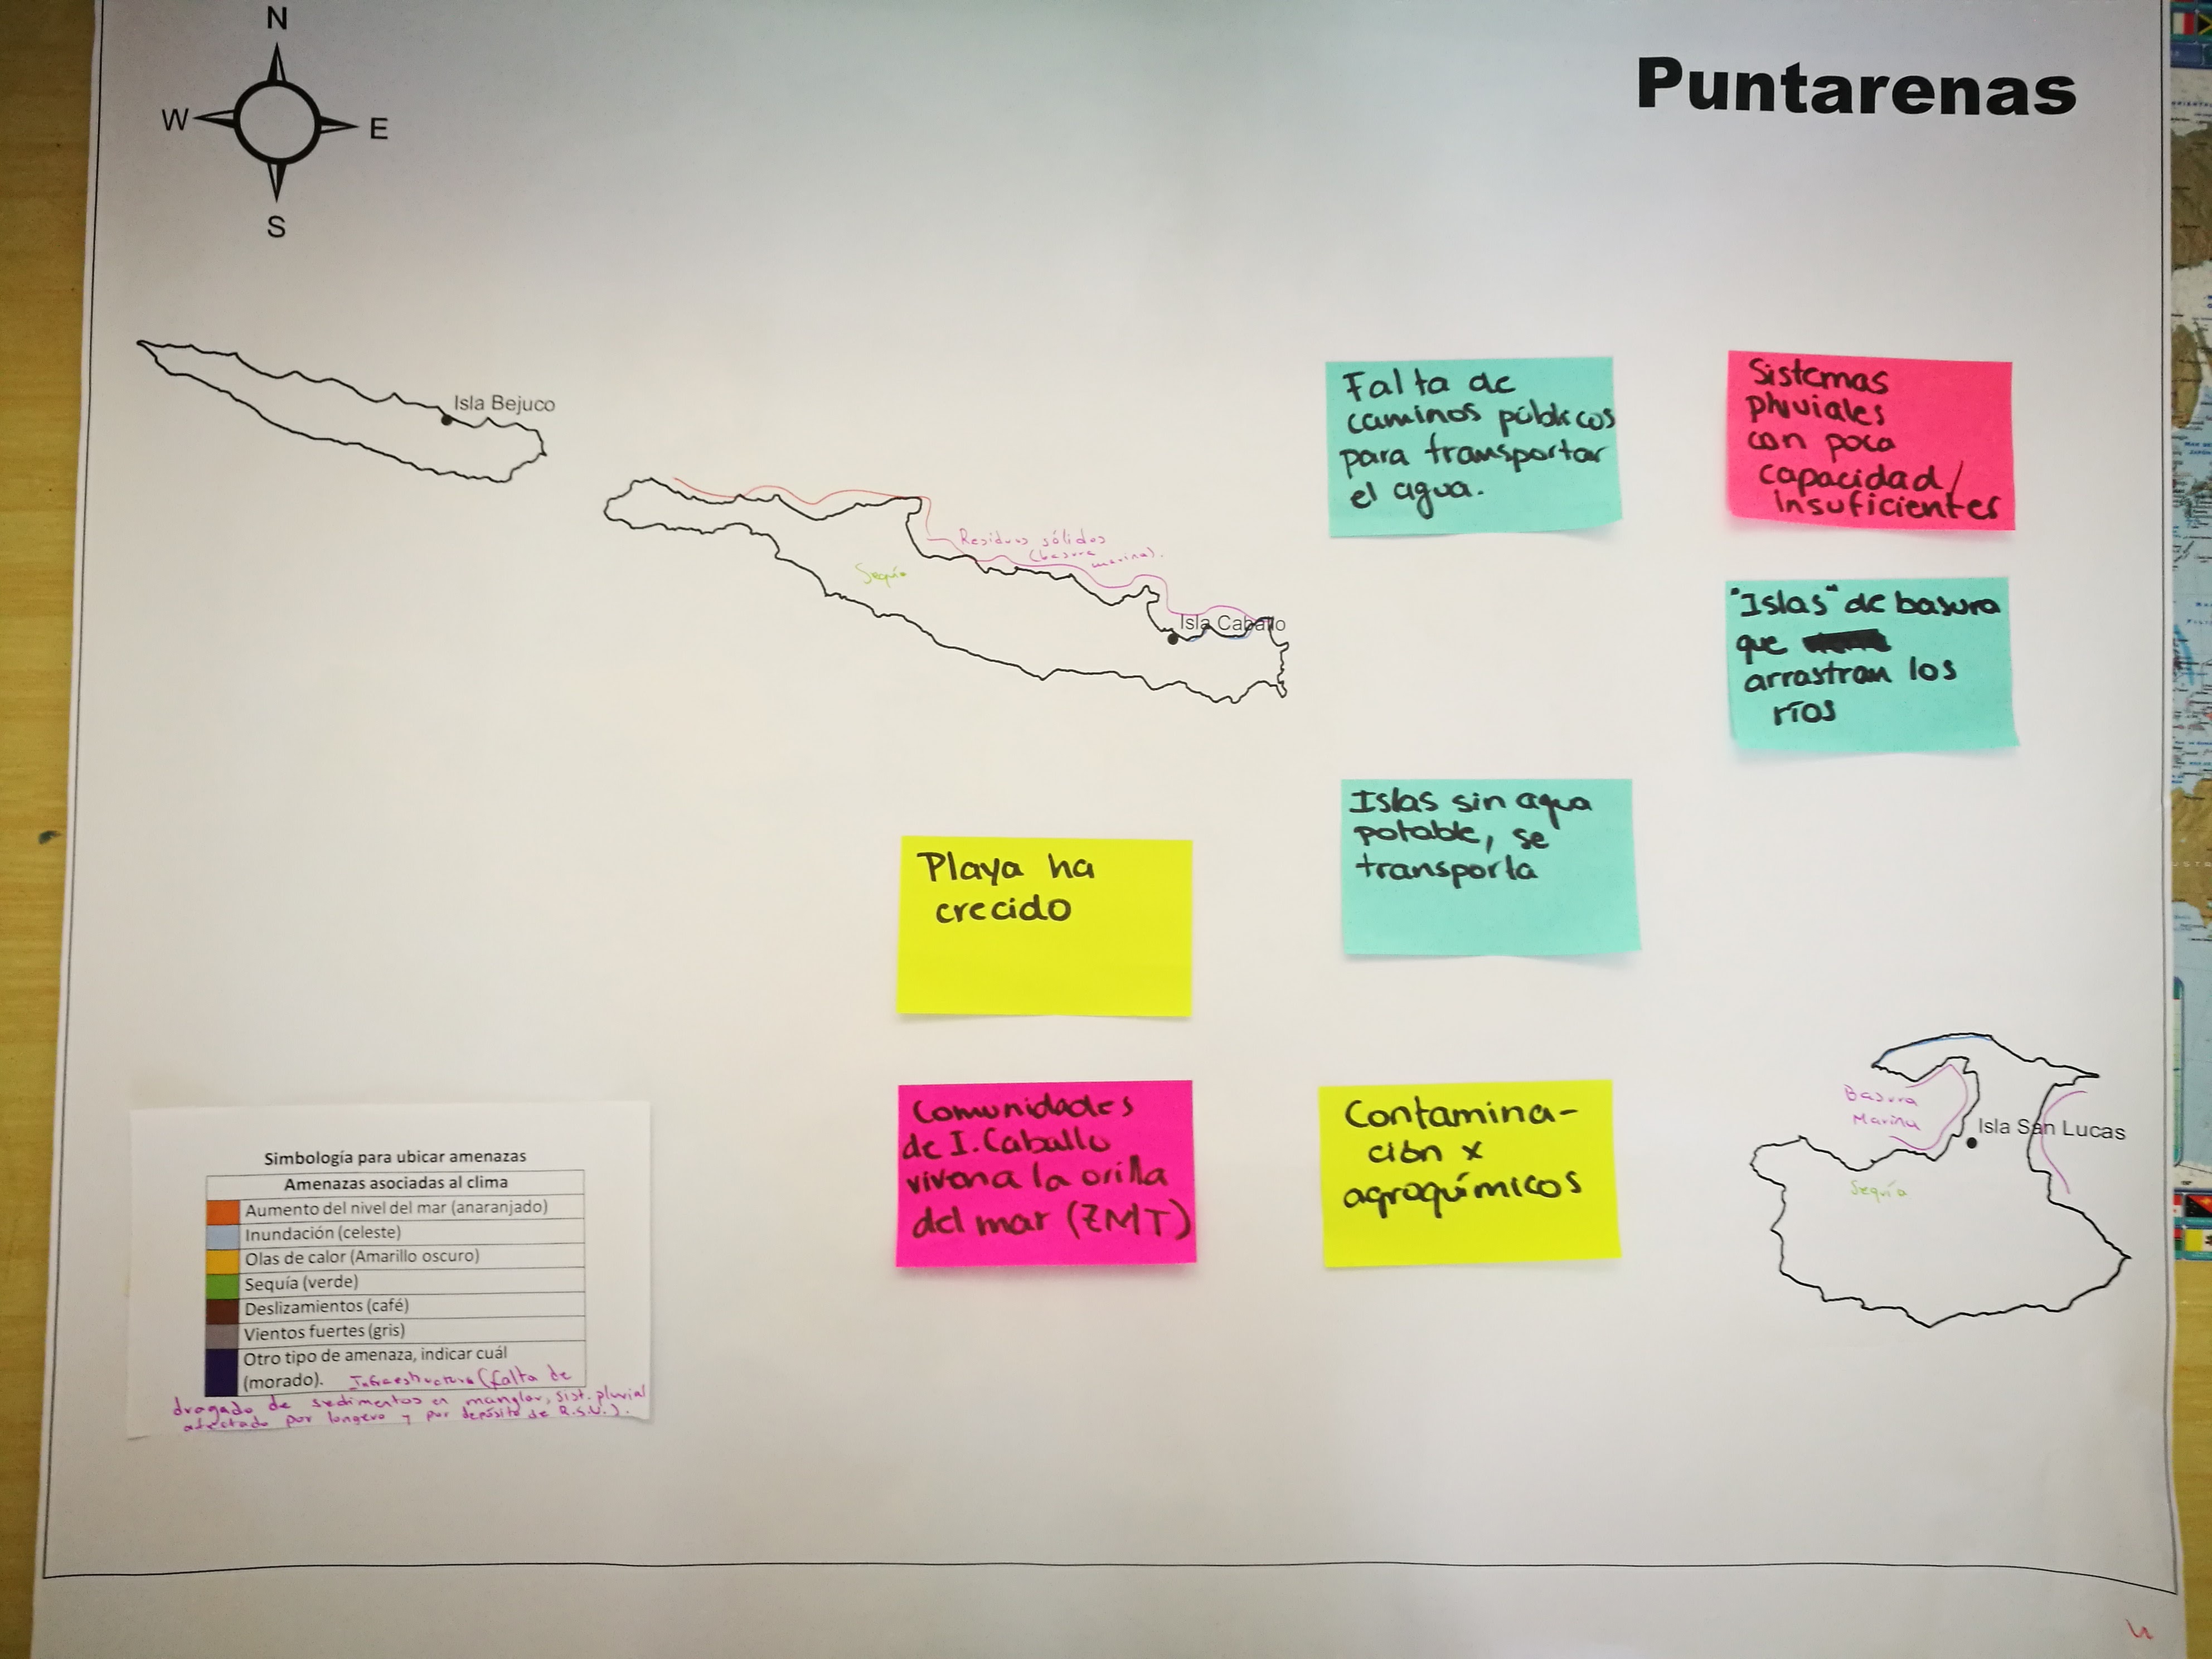 N
W
E
S
Puntarenas
Isla Bejuco
Residuos sólidos
(basura
marina).
Sequía
Isla Caballo
Falta de
caminos públicos
para transportar
el agua.
Sistemas
pluviales
con poca
capacidad/
Insuficientes
"Islas" de basura
que
arrastran los
ríos
Islas sin agua
potable, se
transporta
Playa ha
crecido
Comunidades
de I. Caballo
viven a la orilla
del mar (ZMT)
Contamina-
ción x
agroquímicos
Basura
Marina
Isla San Lucas
Sequía
Simbología para ubicar amenazas
Amenazas asociadas al clima
Aumento del nivel del mar (anaranjado)
Inundación (celeste)
Olas de calor (Amarillo oscuro)
Sequía (verde)
Deslizamientos (café)
Vientos fuertes (gris)
Otro tipo de amenaza, indicar cuál
(morado). Infraestructura (falta de
dragado de sedimentos en manglar, sist. pluvial
afectado por longevo y por depósito de R.S.V.).